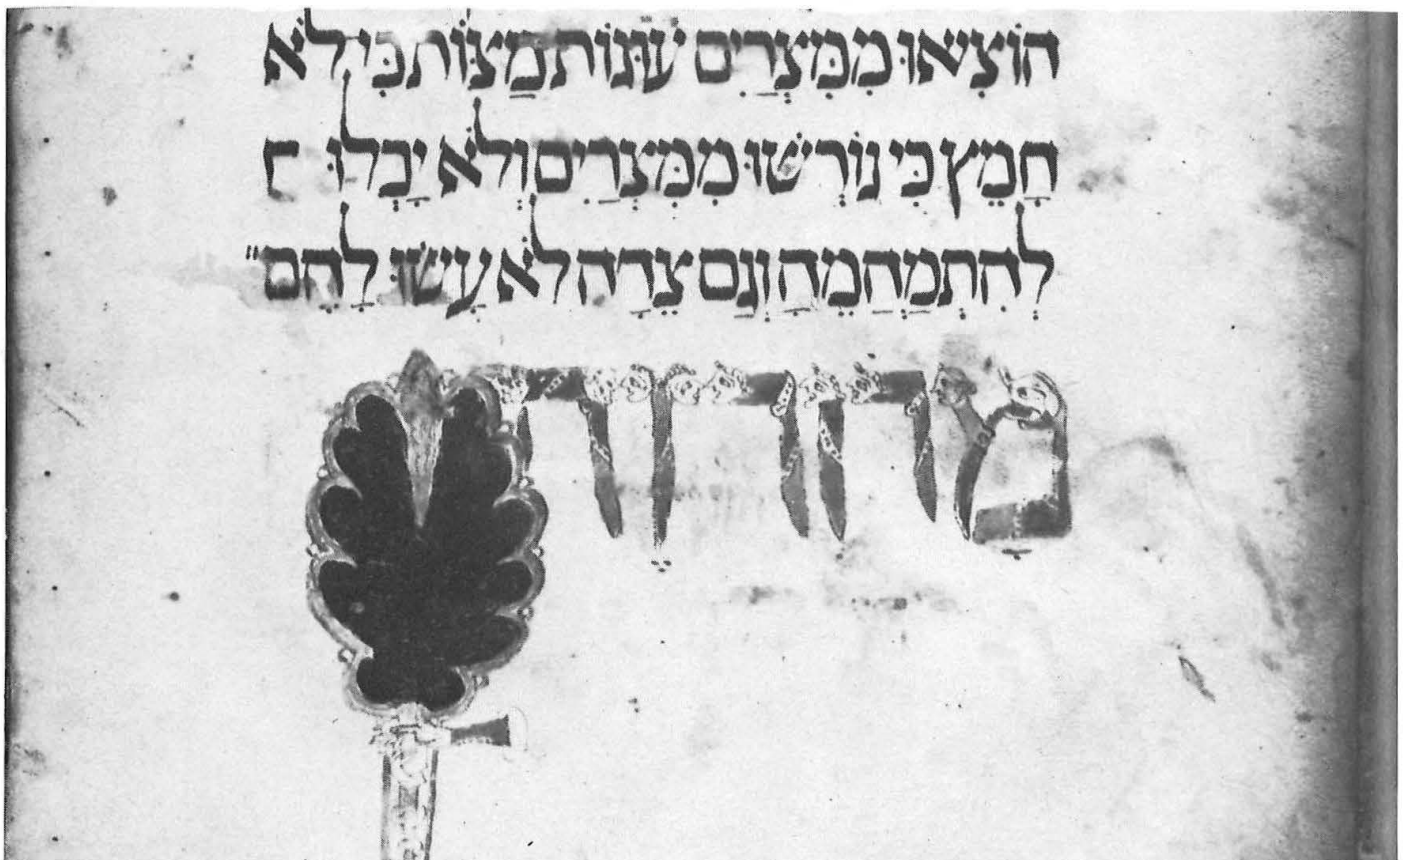 הוֹצִיאוּ מִמִּצְרַיִם עוּגוֹת מַצּוֹת כִּי לֹא
חַמֵץ כִּי גוֹרְשׁוּ מִמִּצְרַיִם וְלֹא יָכְלוּ ח
לְהִתְמַהְמֵהַ וְגַם צֵדָה לֹא עָשׂוּ לָהֶם״
מרור זה